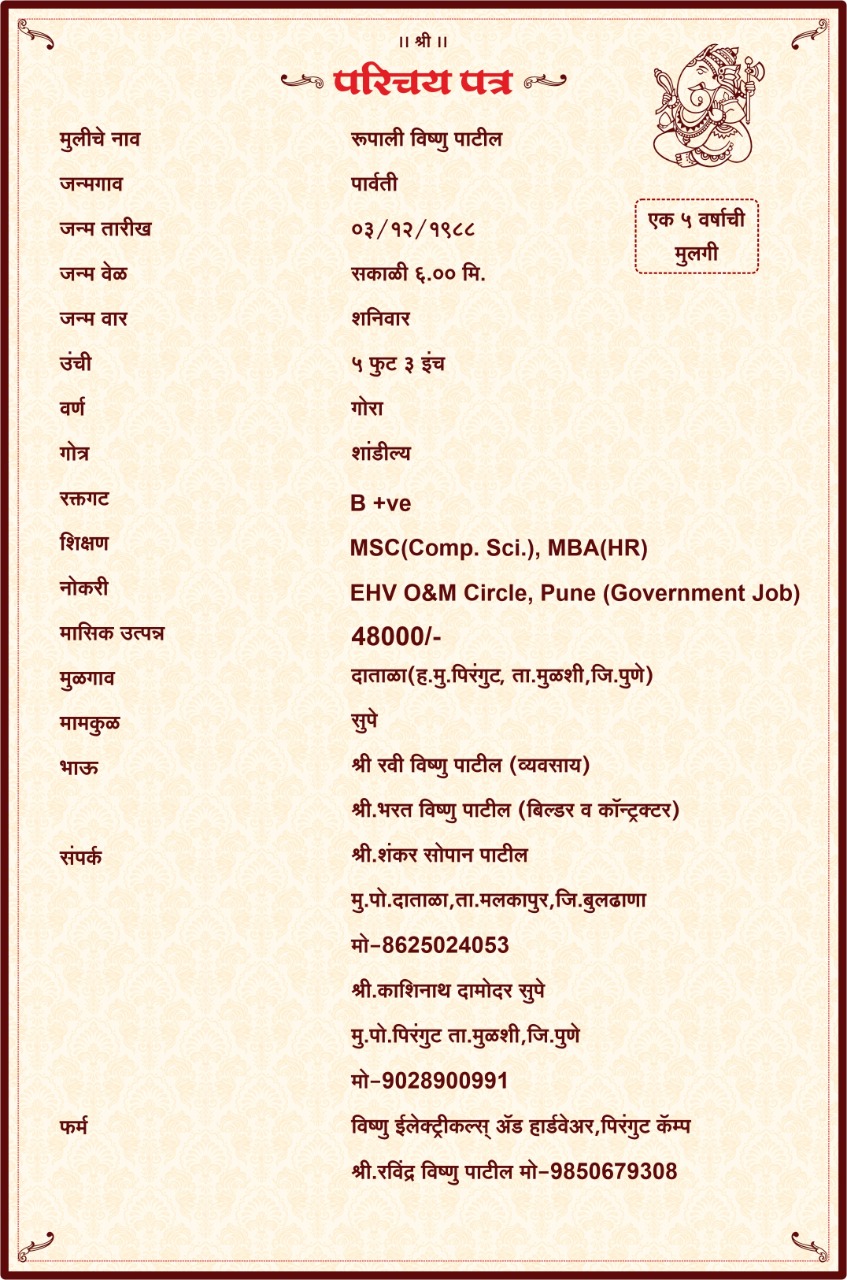 ।। श्री ।।
परिचय पत्र
मुलीचे नाव रूपाली विष्णु पाटील
जन्मगाव पार्वती
जन्म तारीख ०३/१२/१९८८
एक ५ वर्षाची
मुलगी
जन्म वेळ सकाळी ६.०० मि.
जन्म वार शनिवार
उंची ५ फुट ३ इंच
वर्ण गोरा
गोत्र शांडील्य
रक्तगट B +ve
शिक्षण MSC(Comp. Sci.), MBA(HR)
नोकरी EHV O&M Circle, Pune (Government Job)
मासिक उत्पन्न 48000/-
मुळगाव दाताळा(ह.मु.पिरंगुट, ता.मुळशी,जि.पुणे)
मामकुळ सुपे
भाऊ श्री रवी विष्णु पाटील (व्यवसाय)
श्री.भरत विष्णु पाटील (बिल्डर व कॉन्ट्रक्टर)
संपर्क श्री.शंकर सोपान पाटील
मु.पो.दाताळा,ता.मलकापुर,जि.बुलढाणा
मो-8625024053
श्री.काशिनाथ दामोदर सुपे
मु.पो.पिरंगुट ता.मुळशी,जि.पुणे
मो-9028900991
फर्म विष्णु ईलेक्ट्रीकल्स् अॅड हार्डवेअर,पिरंगुट कॅम्प
श्री.रविंद्र विष्णु पाटील मो-9850679308